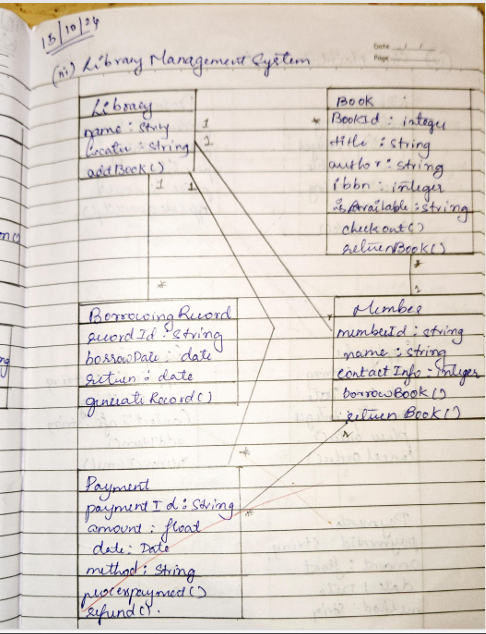 15/10/24
Date / /
Page
(iii) Library Management System
Library
name : String
location : string
addBook()
1
1
1
1
*
Book :
BookId : integer
title : string
author : string
ibbn : integer
isAvailable : string
checkout()
returnBook()
*
1
*
Borrowing Record
recordId : String
borrowDate : date
return : date
generateRecord()
Member
memberId : string
name : string
contactInfo : integer
borrowBook()
return Book()
*
*
Payment
paymentId : String
amount : float
date : Date
method : String
refund().